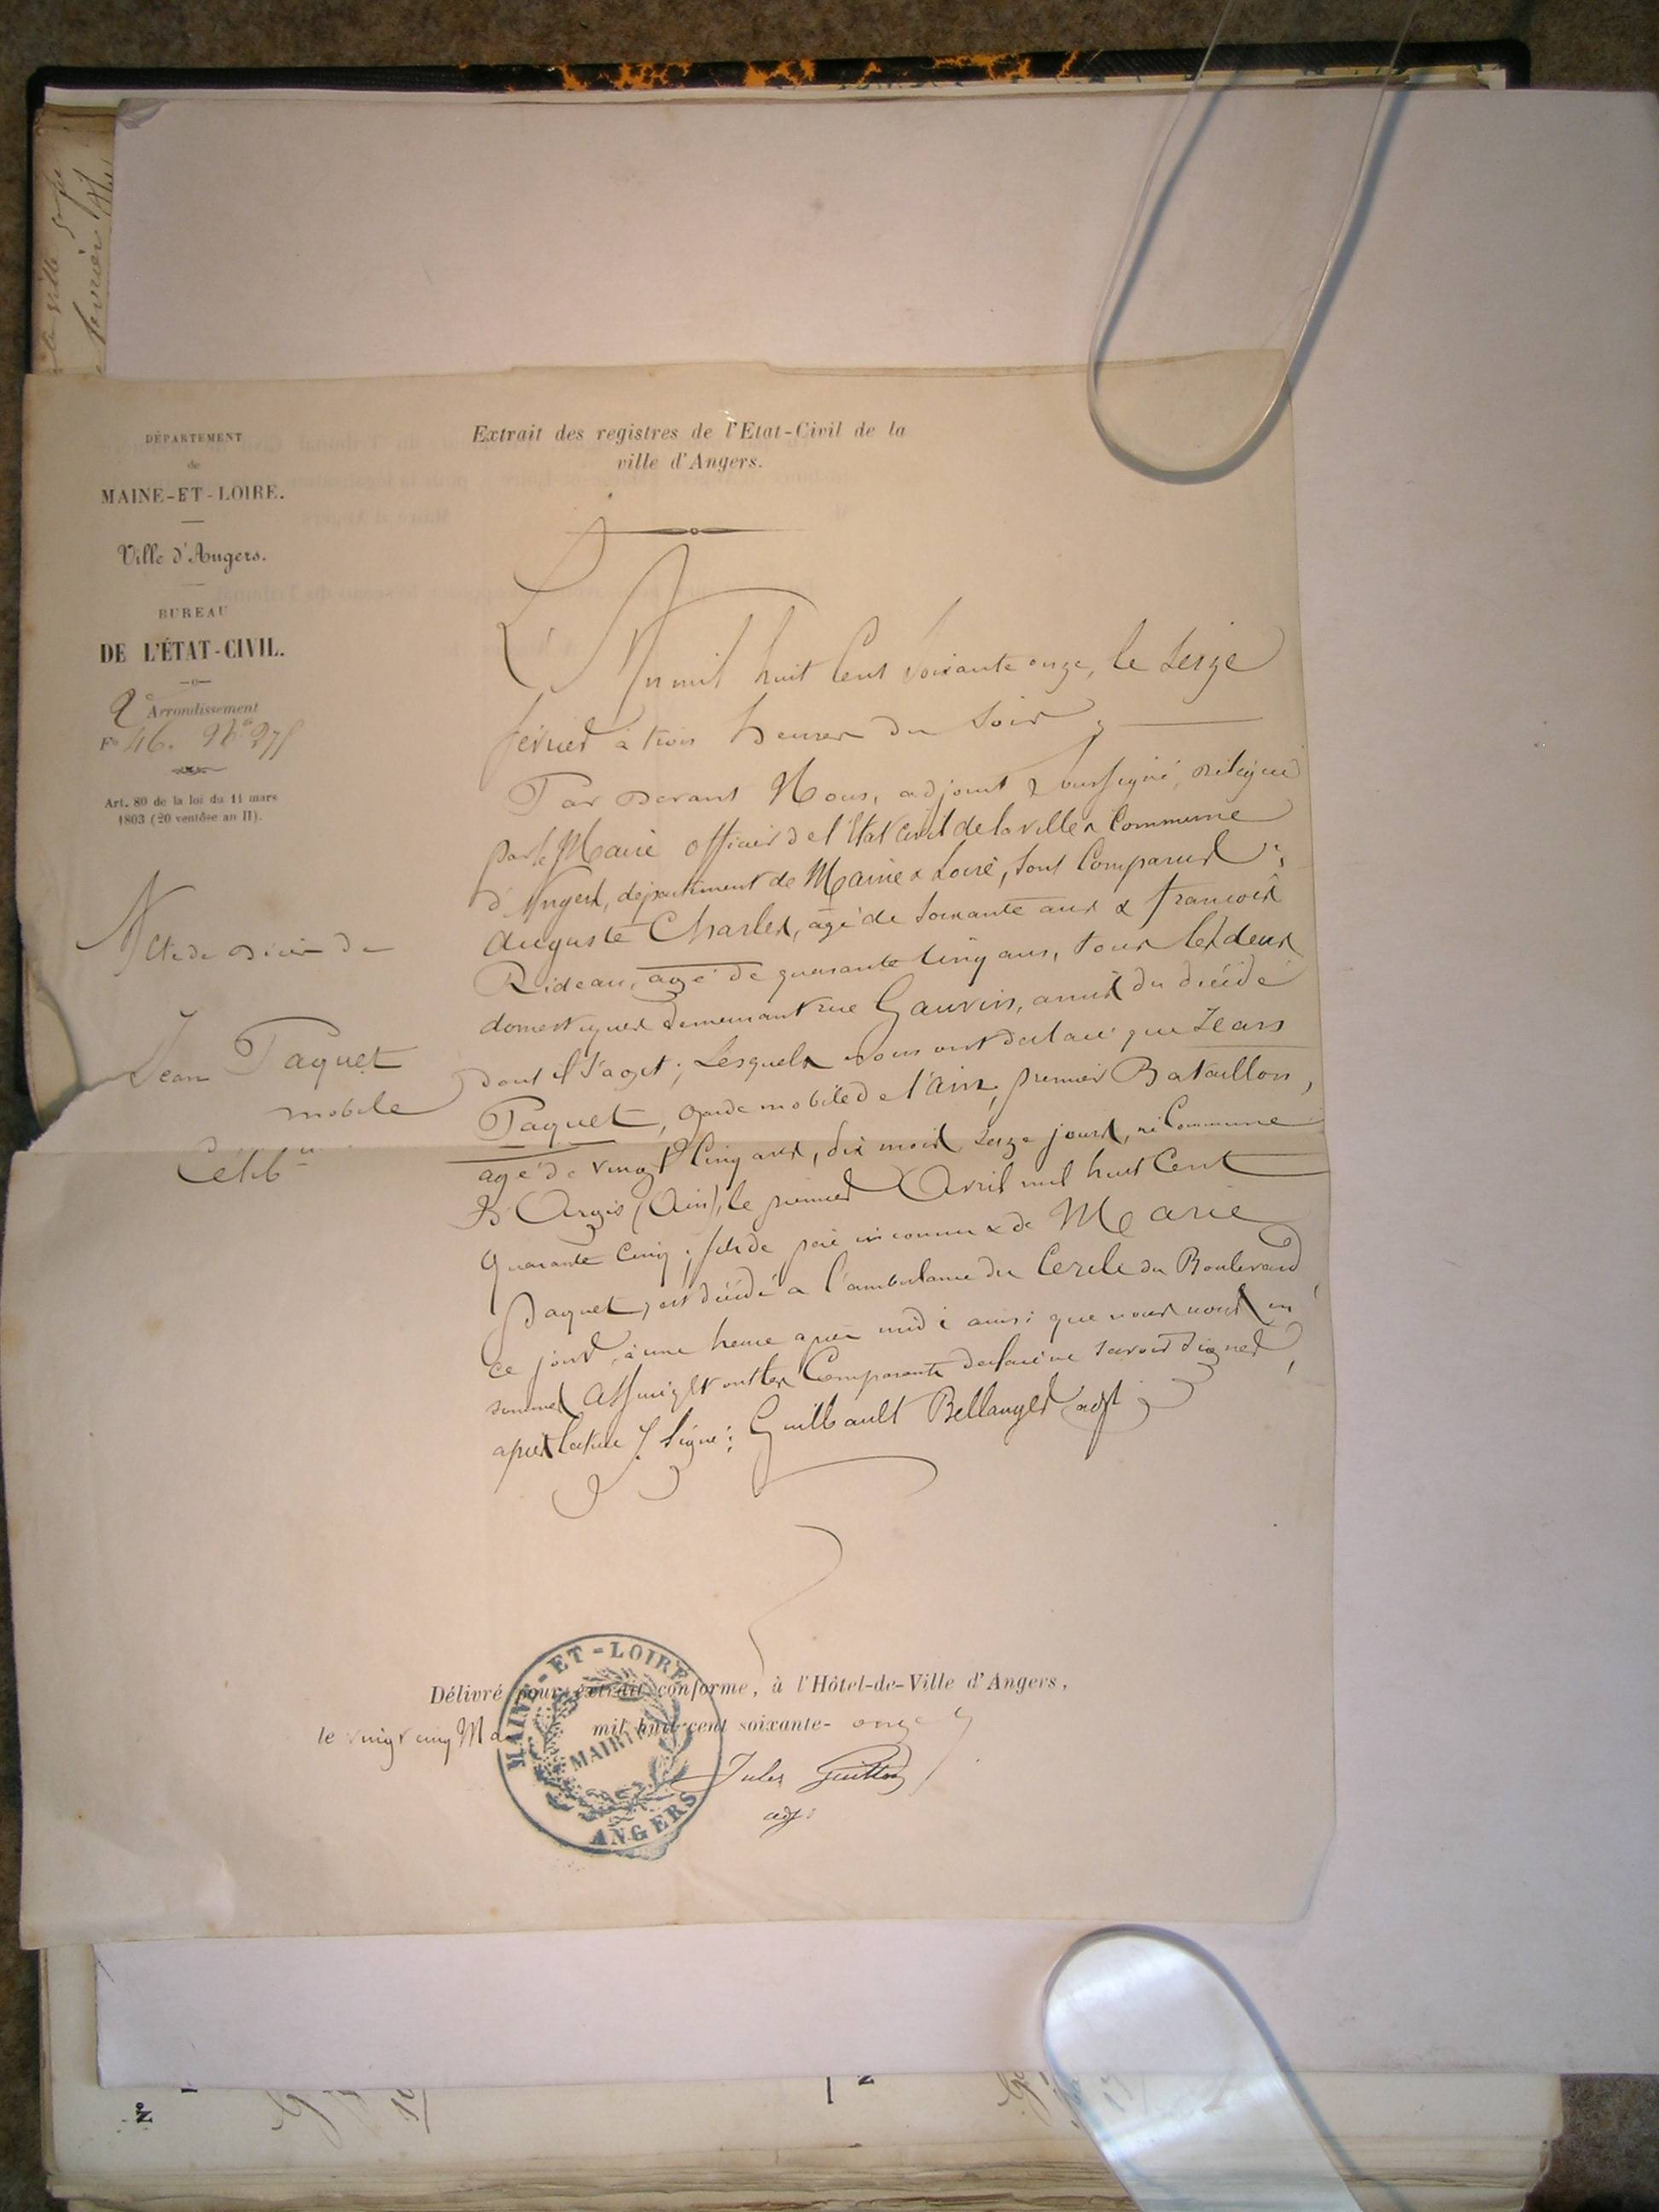 DÉPARTEMENT
de
MAINE-ET-LOIRE.
Ville d'Angers.
BUREAU
DE L'ÉTAT-CIVIL.
2e Arrondissement
F° 46. N°
Art. 80 de la loi du 11 mars
1803 (20 ventôse an II).
Acte de décès de
Jean Paquet
mobile
Célibre
Extrait des registres de l'Etat-Civil de la
ville d'Angers.
L'An mil huit Cent Soixante onze, le Seize
février à trois heures du Soir,
Par devant Nous, adjoint Soussigné, délégué
par le Maire officier de l'État civil de la ville & Commune
d'Angers, département de Maine & Loire, sont Comparus :
Auguste Charles, âgé de Soixante ans & François
Rideau, âgé de quarante cinq ans, tous les deux
domestiques demeurant rue Gauvin, amis du décédé
dont il s'agit ; Lesquels nous ont déclaré que Jean
Paquet, Garde mobile de l'Ain, premier Bataillon,
âgé de vingt Cinq ans, dix mois, seize jours, né Commune
d'Argis (Ain), le premier Avril mil huit Cent
Quarante Cinq ; fils de père inconnu & de Marie
Paquet, est décédé à l'ambulance du Cercle du Boulevard
ce jour, à une heure après midi ainsi que nous nous en
sommes Assuré, & ont les Comparants déclaré ne savoir signer,
après lecture /. Signé : Guilbault Bellanger adjt
Délivré pour extrait conforme, à l'Hôtel-de-Ville d'Angers,
le vingt cinq Ma mil huit cent soixante- onze
Jules Guitton
adjt
MAINE-ET-LOIRE
MAIRIE
ANGERS